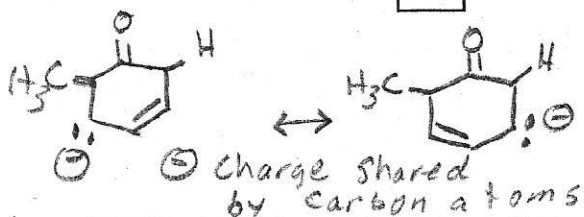 O O
H H
H₃C H₃C
⊖
⊖ ⊖ charge shared
by carbon atoms